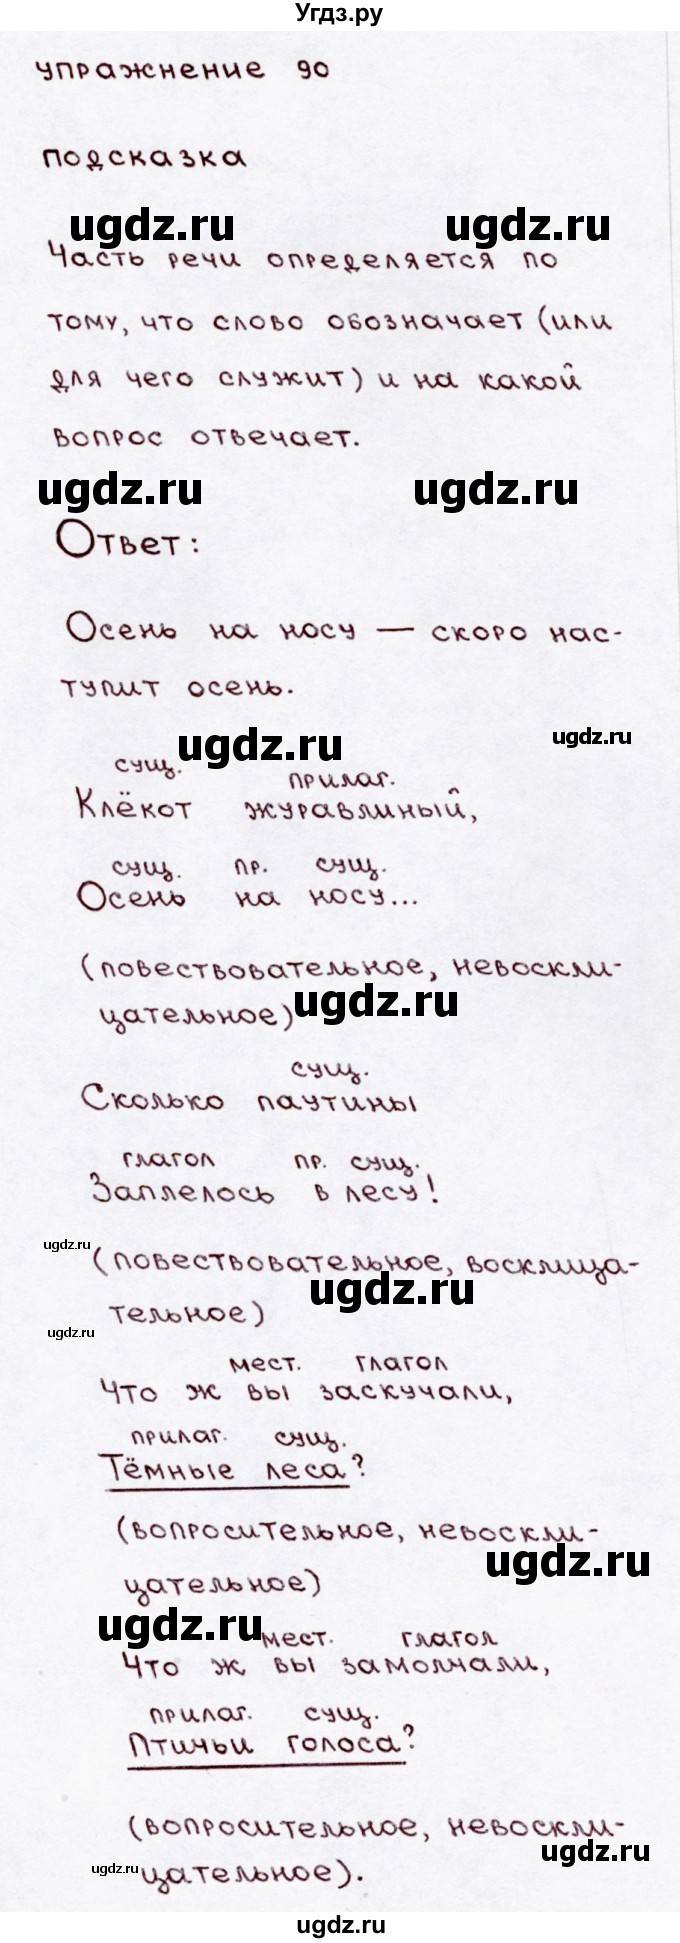 Угдз.ру
упражнение 90
подсказка
ugdz.ru ugdz.ru
Часть речи определяется по
тому, что слово обозначает (или
для чего служит) и на какой
вопрос отвечает.
ugdz.ru ugdz.ru
Ответ:
Осень на носу — скоро нас-
тупит осень.
ugdz.ru ugdz.ru
сущ. прилаг.
Клёкот журавлиный,
сущ. пр. сущ.
Осень на носу...
(повествовательное, невоскли-
цательное)
ugdz.ru
сущ.
Сколько паутины
глагол пр. сущ.
Заплелось в лесу!
ugdz.ru
(повествовательное, восклица-
ugdz.ru
тельное)
ugdz.ru
мест. глагол
Что ж вы заскучали,
прилаг. сущ.
Тёмные леса?
(вопросительное, невоскли-
ugdz.ru
цательное)
ugdz.ru
мест. глагол
Что ж вы замолчали,
прилаг. сущ.
Птичьи голоса?
(вопросительное, невоскли-
ugdz.ru
ugdz.ru
цательное).
ugdz.ru